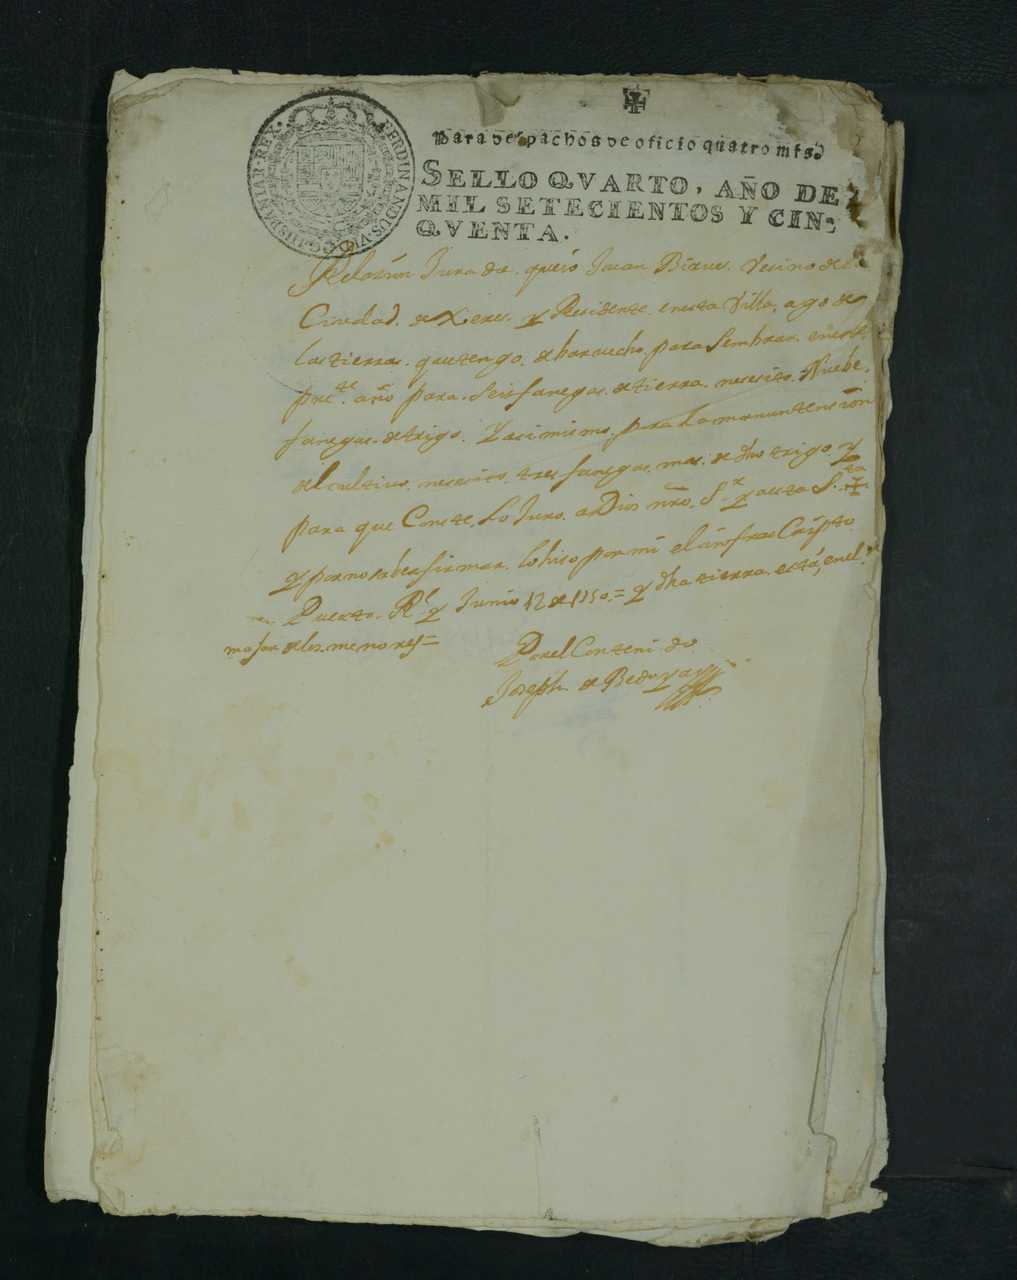 FERDINANDUS VI D G HISPANIAR REX
Para despachos de oficio quatro mrs.
SELLO QVARTO, AÑO DE
MIL SETECIENTOS Y CIN-
QVENTA.
Relazion Jurada que io Juan Vesino de la
Ciudad de Xeres y Residente en esta Villa, ago de
las tierras que tengo de barvecho para sembrar en este
preste. año para seis fanegas de tierra nesesito Nuebe
fanegas de trigo. Y asimismo para la manuntension
del cultivo nesesito tres fanegas mas de dho trigo y
para que Conste Lo Juro a Dios nro. Sr. y a esta S.ta ✝
y por no saber firmar lo hiso por mi el
Puerto Rl. y Junio 12 de 1750 = y dha tierra está en el
majar de los menores =
Por el Contenido
Joseph de Bedoya